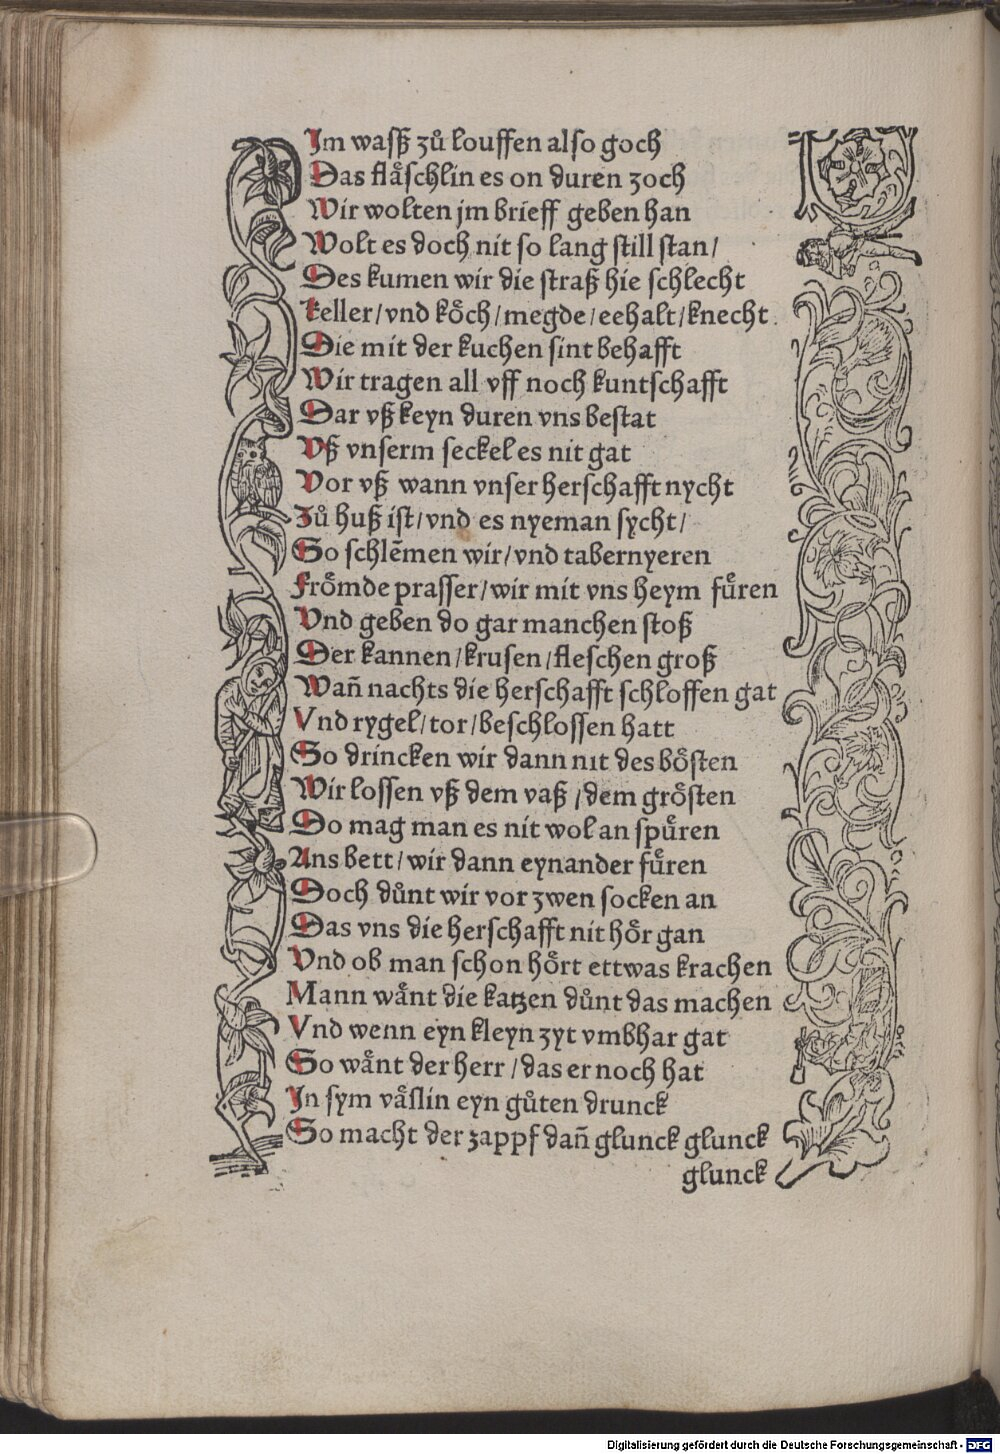 Im wasſz zuͦ louffen also goch
Das flaͤschlin es on duren zoch
Wir wolten jm brieff geben han
Wolt es doch nit so lang still stan/
Des kumen wir die straß hie schlecht
Keller/vnd koͤch/megde/eehalt/knecht.
Die mit der kuchen sint behafft
Wir tragen all vff noch kuntschafft
Dar vß keyn duren vns bestat
Vß vnserm seckel es nit gat
Vor vß wann vnser herschafft nycht
Zuͦ huß ist/vnd es nyeman sycht/
So schlēmen wir/vnd tabernyeren
Froͤmde prasser/wir mit vns heym fuͤren
Vnd geben do gar manchen stoß
Der kannen/krusen/fleschen groß
Wañ nachts die herschafft schloffen gat
Vnd rygel/tor/beschlossen hatt
So drincken wir dann nit des boͤsten
Wir lossen vß dem vaß/dem groͤsten
Do mag man es nit wol an spuͤren
Ans bett/wir dann eynander fuͤren
Doch duͦnt wir vor zwen socken an
Das vns die herschafft nit hoͤr gan
Vnd ob man schon hoͤrt ettwas krachen
Mann waͤnt die katzen duͦnt das machen
Vnd wenn eyn kleyn zyt vmbhar gat
So waͤnt der herr/das er noch hat
In sym vaͤslin eyn guͦten drunck
So macht der zappf dañ glunck glunck
glunck
Digitalisierung gefördert durch die Deutsche Forschungsgemeinschaft - DFG